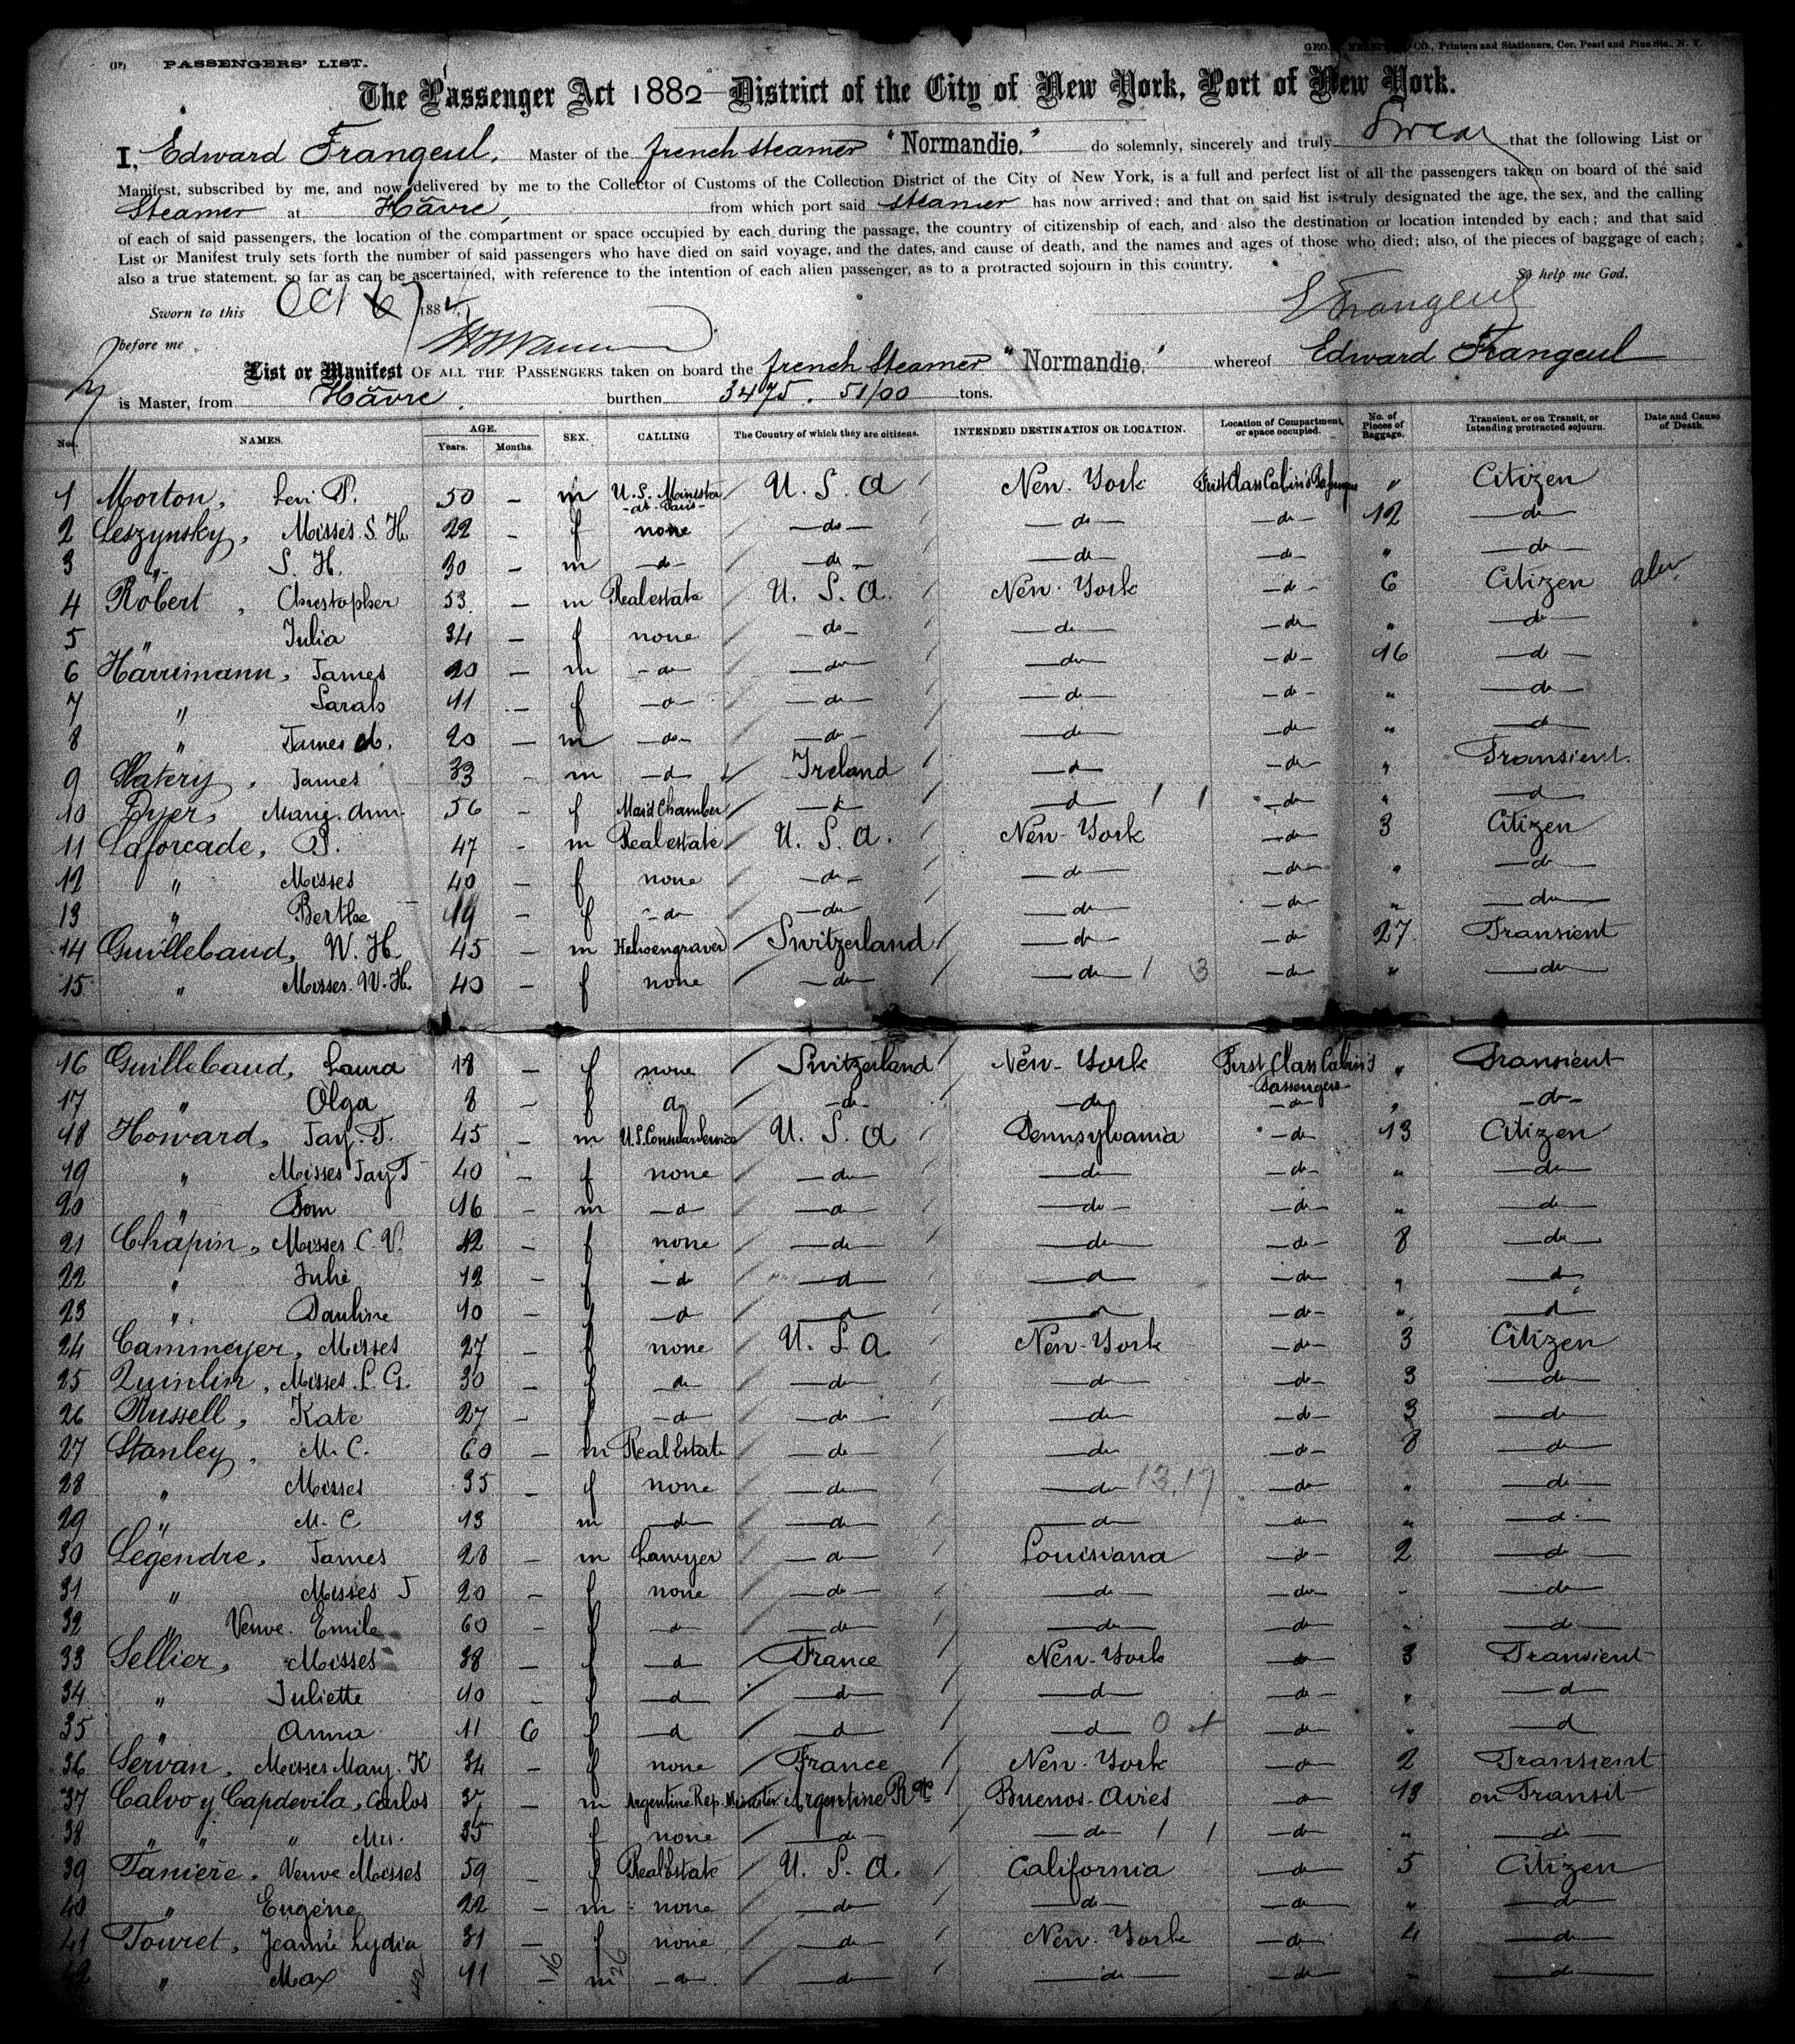 (12) PASSENGERS' LIST.
GEO. NESBITT CO., Printers and Stationers, Cor. Pearl and Pine Sts., N. Y.
The Passenger Act 1882 District of the City of New York, Port of New York.
I, Edward Frangeul, Master of the french steamer "Normandie." do solemnly, sincerely and truly Swear that the following List or
Manifest, subscribed by me, and now delivered by me to the Collector of Customs of the Collection District of the City of New York, is a full and perfect list of all the passengers taken on board of the said
Steamer at Hâvre, from which port said steamer has now arrived; and that on said list is truly designated the age, the sex, and the calling
of each of said passengers, the location of the compartment or space occupied by each during the passage, the country of citizenship of each, and also the destination or location intended by each; and that said
List or Manifest truly sets forth the number of said passengers who have died on said voyage, and the dates, and cause of death, and the names and ages of those who died; also, of the pieces of baggage of each;
also a true statement, so far as can be ascertained, with reference to the intention of each alien passenger, as to a protracted sojourn in this country. So help me God.
Sworn to this Oct 188 EFrangeul
before me
List or Manifest OF ALL THE PASSENGERS taken on board the french Steamer "Normandie," whereof Edward Frangeul
is Master, from Hâvre. burthen 3475. 51/00 tons.
Nos. NAMES. AGE. Years. Months. SEX. CALLING The Country of which they are citizens. INTENDED DESTINATION OR LOCATION. Location of Compartment, or space occupied. No. of Pieces of Baggage. Transient, or on Transit, or Intending protracted sojourn. Date and Cause of Death.
1 Morton, Levi P. 50 - m U. S. Minister at Paris U. S. A New-York First Class Cabin's Passengers " Citizen
2 Leszynsky, Misses S. H. 22 - f none do do do 12 do
3 " S. H. 30 - m do do do do " do
4 Robert, Christopher 53 - m Real estate U. S. A. New-York do 6 Citizen
5 " Julia 34 - f none do do do " do
6 Harrimann, James 20 - m do do do do 16 do
7 " Sarah 41 - f do do do do " do
8 " James A. 20 - m do do do do " do
9 Slatery, James 33 - m d Ireland d do " Transient
10 Dyer, Marie Ann 56 - f Maid Chamber d d 1 1 do " d
11 Laforcade, P. 47 - m Real estate U. S. A. New-York do 3 Citizen
12 " Misses 40 - f none do do do " do
13 " Berthe 19 - f do do do do " do
14 Guillebaud, W. H. 45 - m Helioengraver Switzerland do do 27 Transient
15 " Misses W. H. 40 - f none do do 1 3 do " do
16 Guillebaud, Laura 18 - f none Switzerland New-York First Class Cabin's Passengers " Transient
17 " Olga 8 - f d do do do " do
18 Howard, Jay. T. 45 - m U. S. A Pennsylvania do 13 Citizen
19 " Misses Jay T 40 - f none do do do " do
20 " Tom 16 - m d d do do " do
21 Chapin, Misses C. V. 42 - f none do do do 8 do
22 " Julie 12 - f d d d do " d
23 " Pauline 10 - f d d d do " d
24 Cammeyer, Misses 27 - f none U. S. A New-York do 3 Citizen
25 Quinlin, Misses L. G. 30 - f do do do do 3 do
26 Russell, Kate 27 - f d do do do 3 do
27 Stanley, M. C. 60 - m Real Estate do do do 8 do
28 " Misses 35 - f none do do 13.17 do " do
29 " M. C 13 m do do do do " d
30 Legendre, James 28 - m Lawyer d Louisiana do 2 do
31 " Misses J 20 - f none do do do - do
32 " Veuve Emile 60 - f do do do do " do
33 Sellier, Misses 38 - f d France New-York do 3 Transient
34 " Juliette 10 - f d d d do " d
35 " Anna 11 6 f d d d do " d
36 Servan, Misses Mary. K 34 - f none France New-York do 2 Transient
37 Calvo y Capdevila, Carlos 37 - m Argentine Rep. Minister Argentine Rep. Buenos-Aires do 13 on Transit
38 " " " 35 f none do do 1 1 do " do
39 Taniere, Veuve Misses 59 f Real Estate U. S. A. California do 5 Citizen
40 " Eugène 22 - m none do do do " do
41 Touret, Jeanne Lydia 31 - f none do New-York do 4 do
42 " Max 11 - m do do do do - do